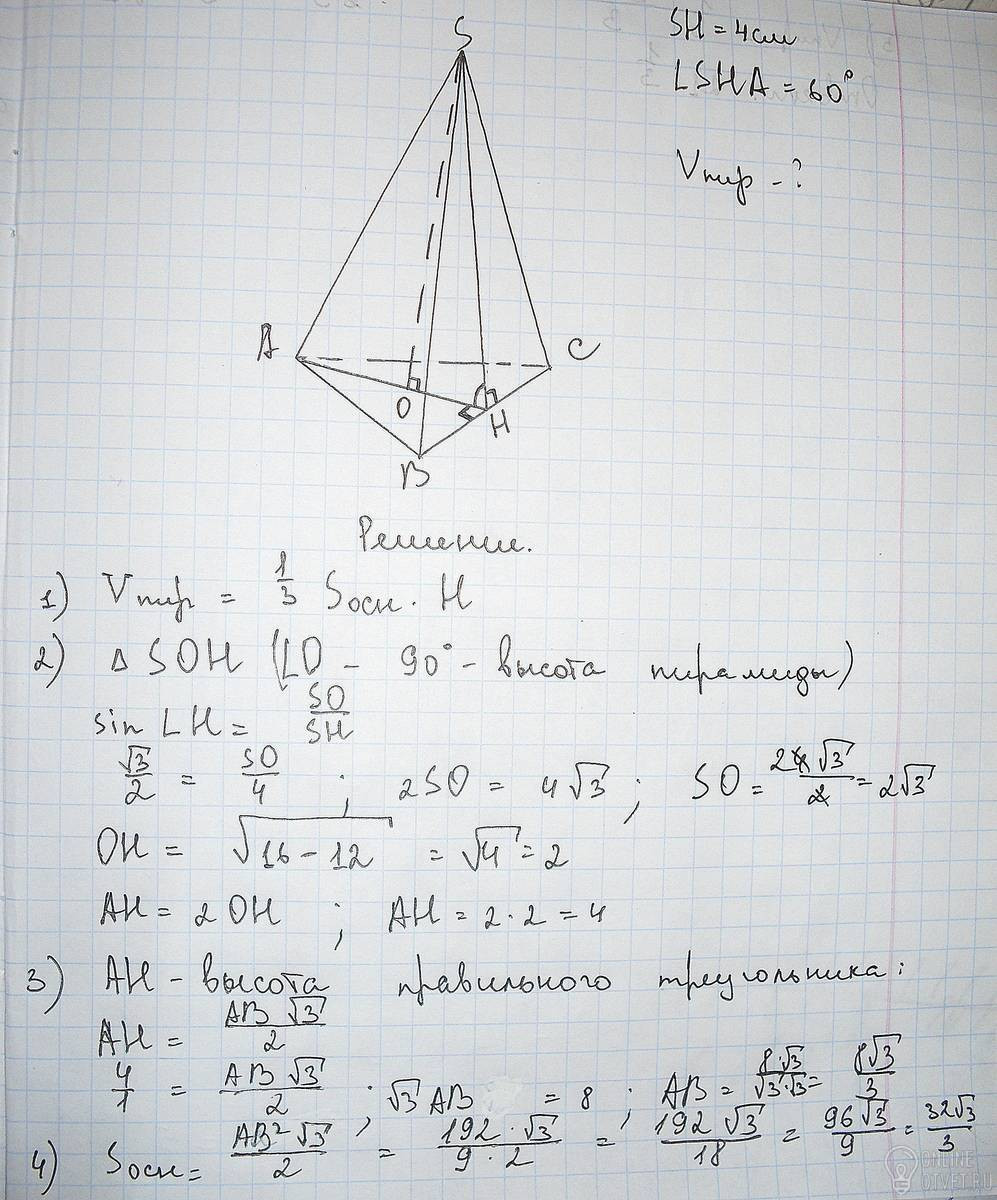 S
SH = 4см
∠SHA = 60°
Vпир - ?
A
C
O
H
B
Решение.
1) Vпир = 1/3 Sосн · H
2) Δ SOH (∠O - 90° - высота пирамиды)
sin ∠H = SO/SH
√3/2 = SO/4 ; 2SO = 4√3 ; SO = 2 4√3/2 = 2√3
OH = √(16 - 12) = √4 = 2
AH = 2OH ; AH = 2·2 = 4
3) AH - высота правильного треугольника:
AH = AB √3/2
4/1 = AB √3/2 ; √3 AB = 8 ; AB = 8·√3/√3·√3 = 8√3/3
4) Sосн = AB² √3/2 = 192·√3/9·2 = 192√3/18 = 96√3/9 = 32√3/3
ONLINE
OTVET.RU